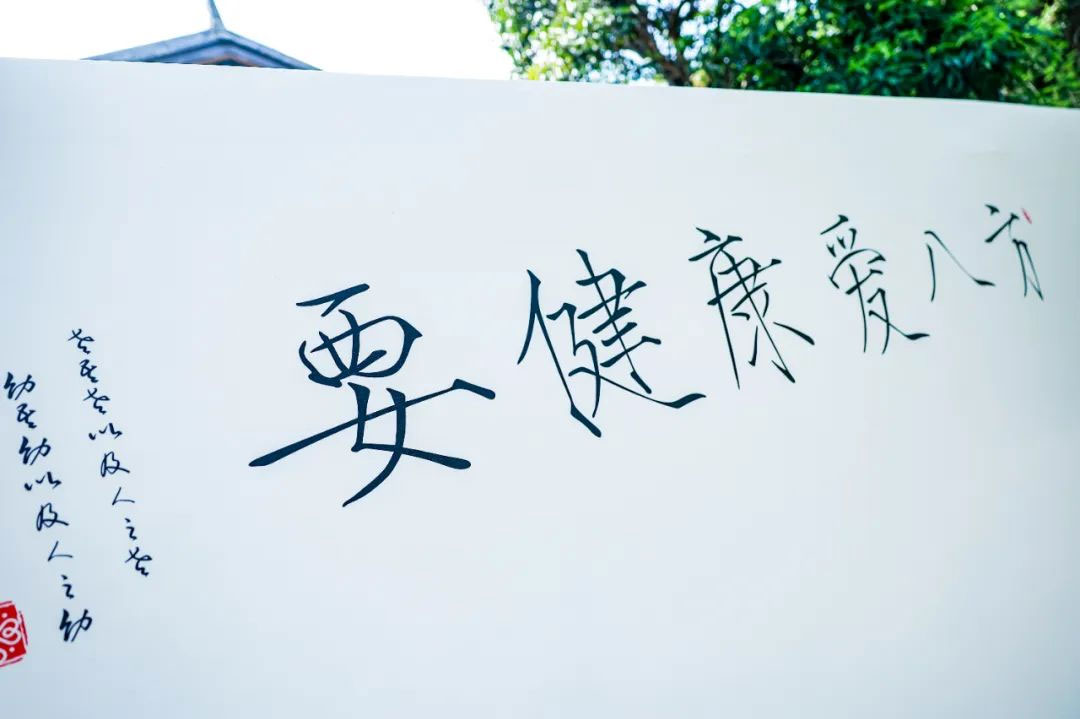 要健康愛八方
老吾老以及人之老
幼吾幼以及人之幼